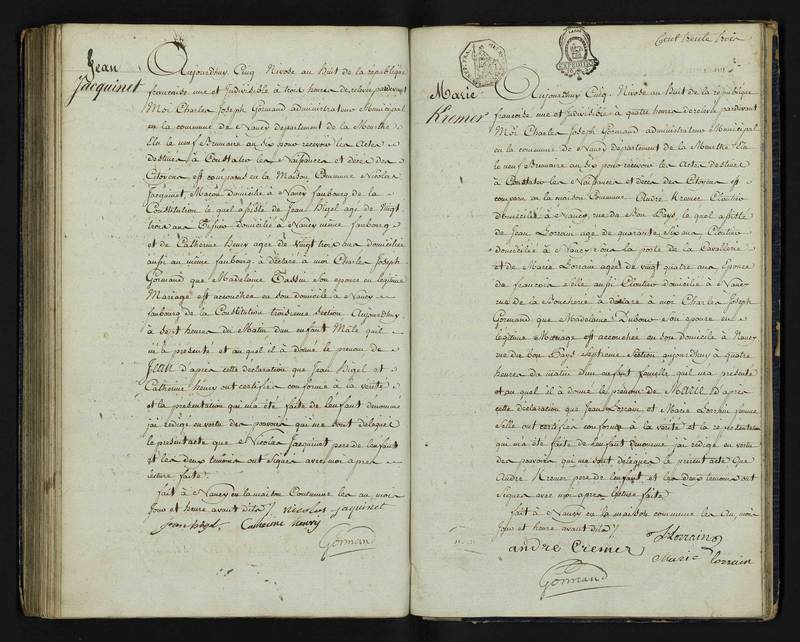 Jean
Jacquinet
Aujourdhuy Cinq Nivose au Huit de la république
francoise une et Indivisible à trois heures de relevée pardevant
Moi Charles Joseph Gormand administrateur Municipal
en la commune de Nancy departement de la Meurthe
Elu le neuf Brumaire an six pour recevoir les Actes
destinés à Constater les Naissances et décès des
Citoyens est comparu en la Maison Commune Nicolas
Jacquinet, Maçon domicilié à Nancy faubourg de la
Constitution le quel assisté de Jean Bigel agé de Vingt
trois ans domicilié à Nancy même faubourg
et de Catherine Henry agée de Vingt trois ans domiciliée
aussi au même faubourg à déclaré à moi Charles Joseph
Gormand que Madelaine Tassin son epouse en legitime
Mariage est accouchée en son domicile à Nancy
faubourg de la Constitution troisieme section Aujourdhuy
à sept heures du Matin d'un enfant Mâle quil
m'a présenté et au quel il à donné le prenom de
Jean d'apres cette declaration que Jean Bigel et
Catherine henry ont certifiée conforme à la verité
et la présentation qui m'a été faite de l'enfant denommé
j'ai rédigé en vertu des pouvoirs qui me sont délégués
le present acte que Nicolas Jacquinet pere de l'enfant
et les deux temoins ont signés avec moi apres
lecture faite.
fait à Nancy en la maison Commune les an, mois
Jour et heure avant dits
nicolas jaquinet
jean bigel
Catherine henry
Gormand
Cent trente trois
Marie
Kremer
Aujourdhuy Cinq Nivose au Huit de la republique
francoise une et Indivisible à quatre heures de relevée pardevant
Moi Charles Joseph Gormand administrateur Municipal
en la commune de Nancy departement de la Meurthe Elu
le neuf Brumaire an six pour recevoir les Actes destinés
à Constater les Naissances et décès des Citoyens est
comparu en la maison Commune André Kremer Cloutier
domicilié à Nancy rue du bon Pays le quel assisté
de Jean Lorrain agé de quarante six ans Cloutier
domicilié à Nancy la porte de la Cavallerie
et de Marie Lorrain agée de vingt quatre ans Epouse
de francois aussi Cloutier domicilié à Nancy
rue de la Boucherie à déclaré à moi Charles Joseph
Gormand que Madelaine son epouse en
legitime Mariage est accouchée en son domicile à Nancy
rue du bon Pays septieme Section aujourdhuy à quatre
heures du matin d'un enfant femelle quil m'a presenté
et au quel il à donné le prenom de Marie D'apres
cette declaration que Jean Lorrain et Marie Lorrain femme
ont certifiée conforme à la verité et la representation
qui m'a été faite de l'enfant denommé j'ai rédigé en vertu
des pouvoirs qui me sont délégués le présent acte Que
André Kremer pere de l'enfant et les deux temoins ont
Signés avec moi apres lecture faite
fait à Nancy en la maison commune les An, mois
Jour et heure avant dits
andre Cremer
J Lorrain
Marie lorrain
Gormand